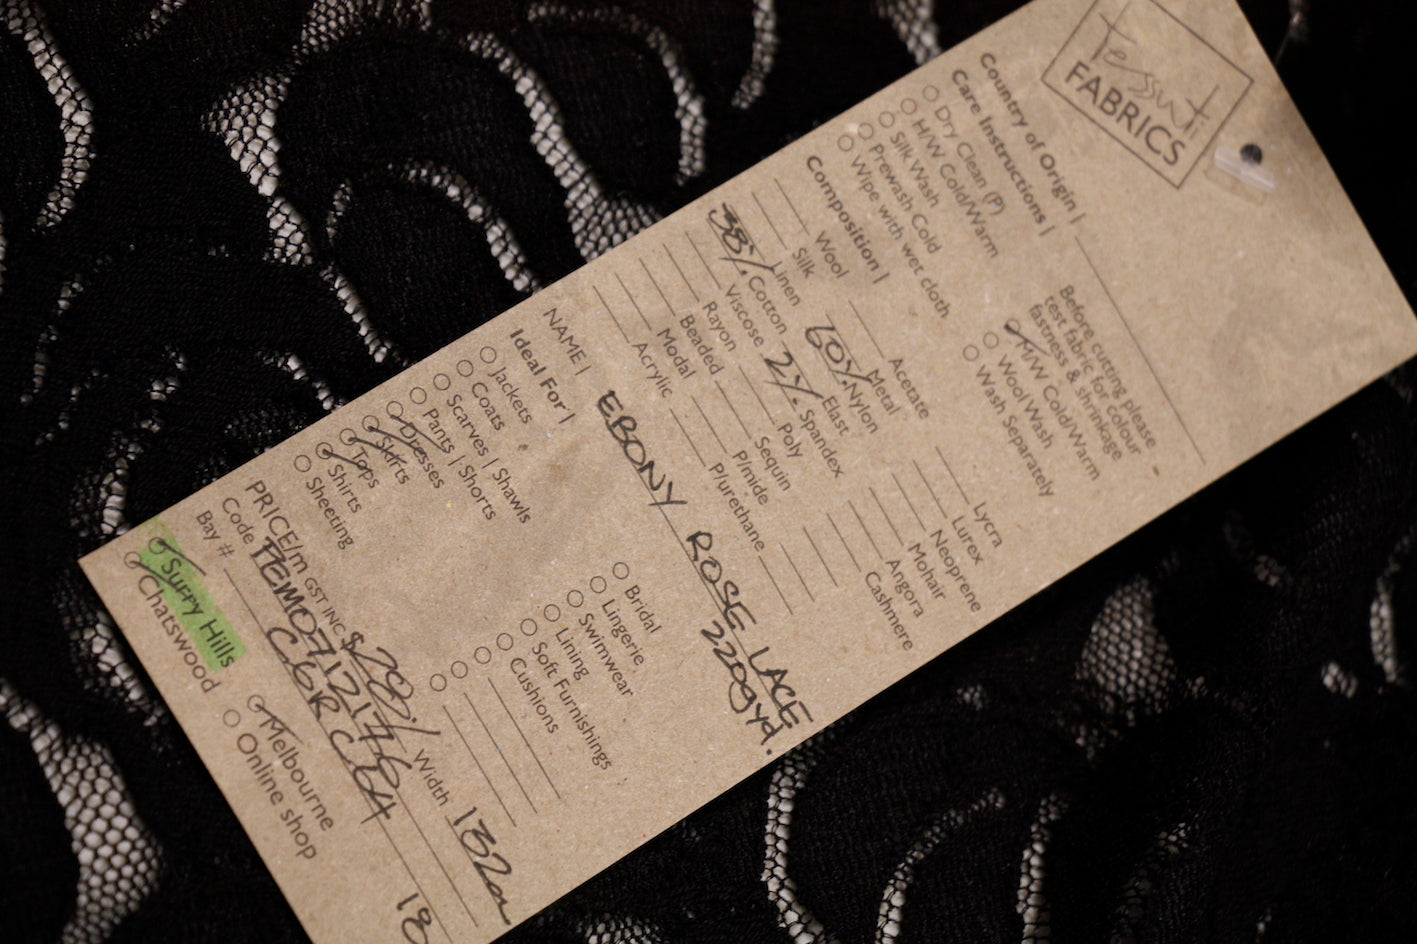 Tessuti
FABRICS
Country of Origin |
Care Instructions |
Dry Clean (P)
H/W Cold/Warm
Silk Wash
Prewash Cold
Wipe with wet cloth
Before cutting please
test fabric for colour
fastness & shrinkage
M/W Cold/Warm
Wool Wash
Wash Separately
Composition |
Wool
Silk
Linen
38% Cotton
Viscose
Rayon
Beaded
Modal
Acrylic
Acetate
Metal
60% Nylon
Elast
2% Spandex
Poly
Sequin
P/mide
P/urethane
Lycra
Lurex
Neoprene
Mohair
Angora
Cashmere
NAME | EBONY ROSE LACE
220gyd.
Ideal For |
Jackets
Coats
Scarves | Shawls
Pants | Shorts
Dresses
Skirts
Tops
Shirts
Sheeting
Bridal
Lingerie
Swimwear
Lining
Soft Furnishings
Cushions
PRICE/m GST INC Width 132cm
Code
Bay #
Surry Hills
Chatswood
Melbourne
Online shop